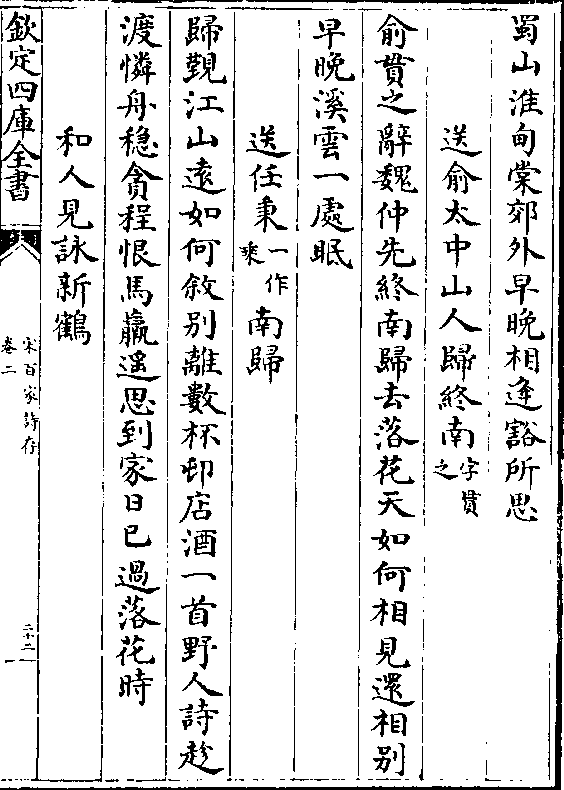 蜀山淮甸棠郊外早晚相逢豁所思
送俞太中山人歸終南字貫之
俞貫之辭魏仲先終南歸去落花天如何相見還相别
早晚溪雲一處眠
送任秉一作乘南歸
歸覲江山逺如何敘别離數杯邨店酒一首野人詩趁
渡憐舟穏貪程恨馬羸遥思到家日已過落花時
和人見詠新鶴
欽定四庫全書
宋百家詩存
卷二
二十二